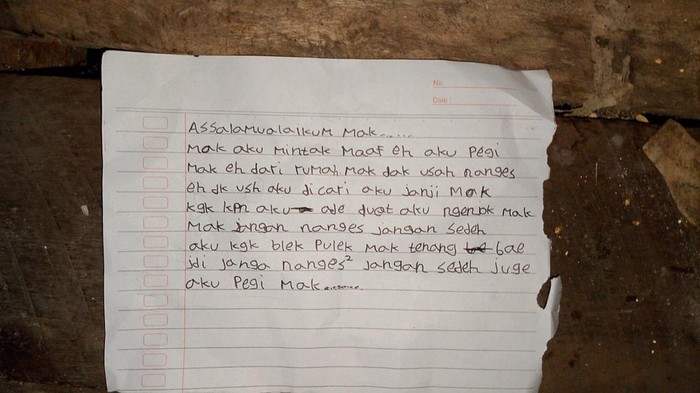 No.
Date:
Assalamualaikum Mak......
Mak aku mintak Maaf eh aku Pegi
Mak eh dari rumah Mak dak usah nanges
eh dk ush aku dicari aku janji Mak
kgk kpn aku ade duet aku ngenjok Mak
Mak jangan nanges jangan sedeh
aku kgk blek Pulek Mak tenang bae
jdi janga nanges² jangan sedeh juge
aku Pegi Mak.......